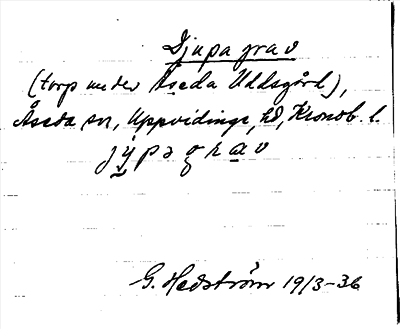 Djupa grav
(torp under Åseda Uddsgård),
Åseda sn, Uppvidinge hd, Kronob. l.
jy̆pa grav
G. Hedström 19/3-36